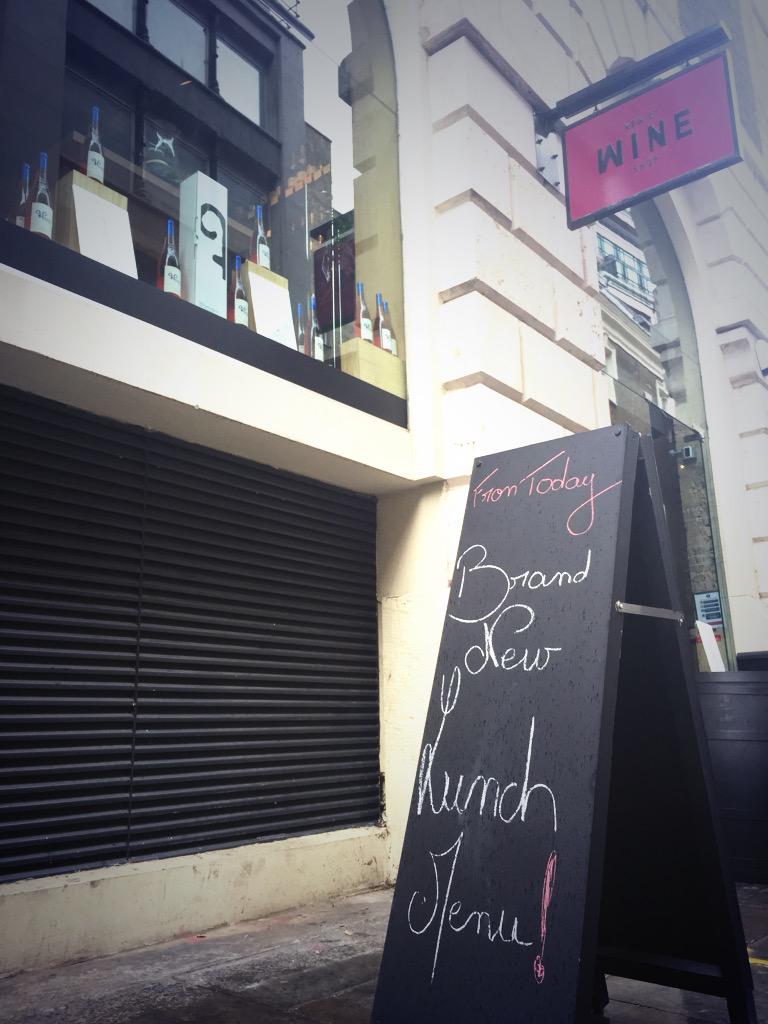 WINE
From Today
Brand
New
Lunch
Menu!